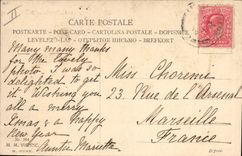 CARTE POSTALE
POSTKARTE — POST CARD — CARTOLINA POSTALE — DOPISNICE
LEVELEZŐ-LAP — ОТКРЫТОЕ ПИСЬМО — BREFKORT
Many many thanks
for the lovely
photo, I was so
delighted to
get it Wishing you
all a merry
Xmas & a happy
New Year
Auntie
Miss
23. Rue de l'Arsenal
Marseille
France